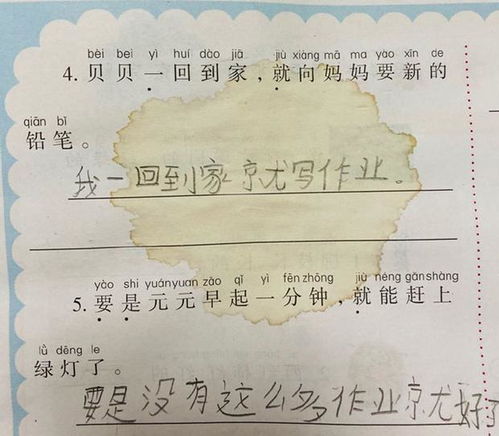 bèi bei yì huí dào jiā jiù xiàng mā ma yào xīn de
4. 贝贝一回到家，就向妈妈要新的
qiān bǐ
铅笔。
我一回到家就写作业。
yào shi yuányuan zǎo qǐ yì fēnzhōng jiù néng gǎnshàng
5. 要是元元早起一分钟，就能赶上
lǜ dēng le
绿灯了。
要是没有这么多作业就好了